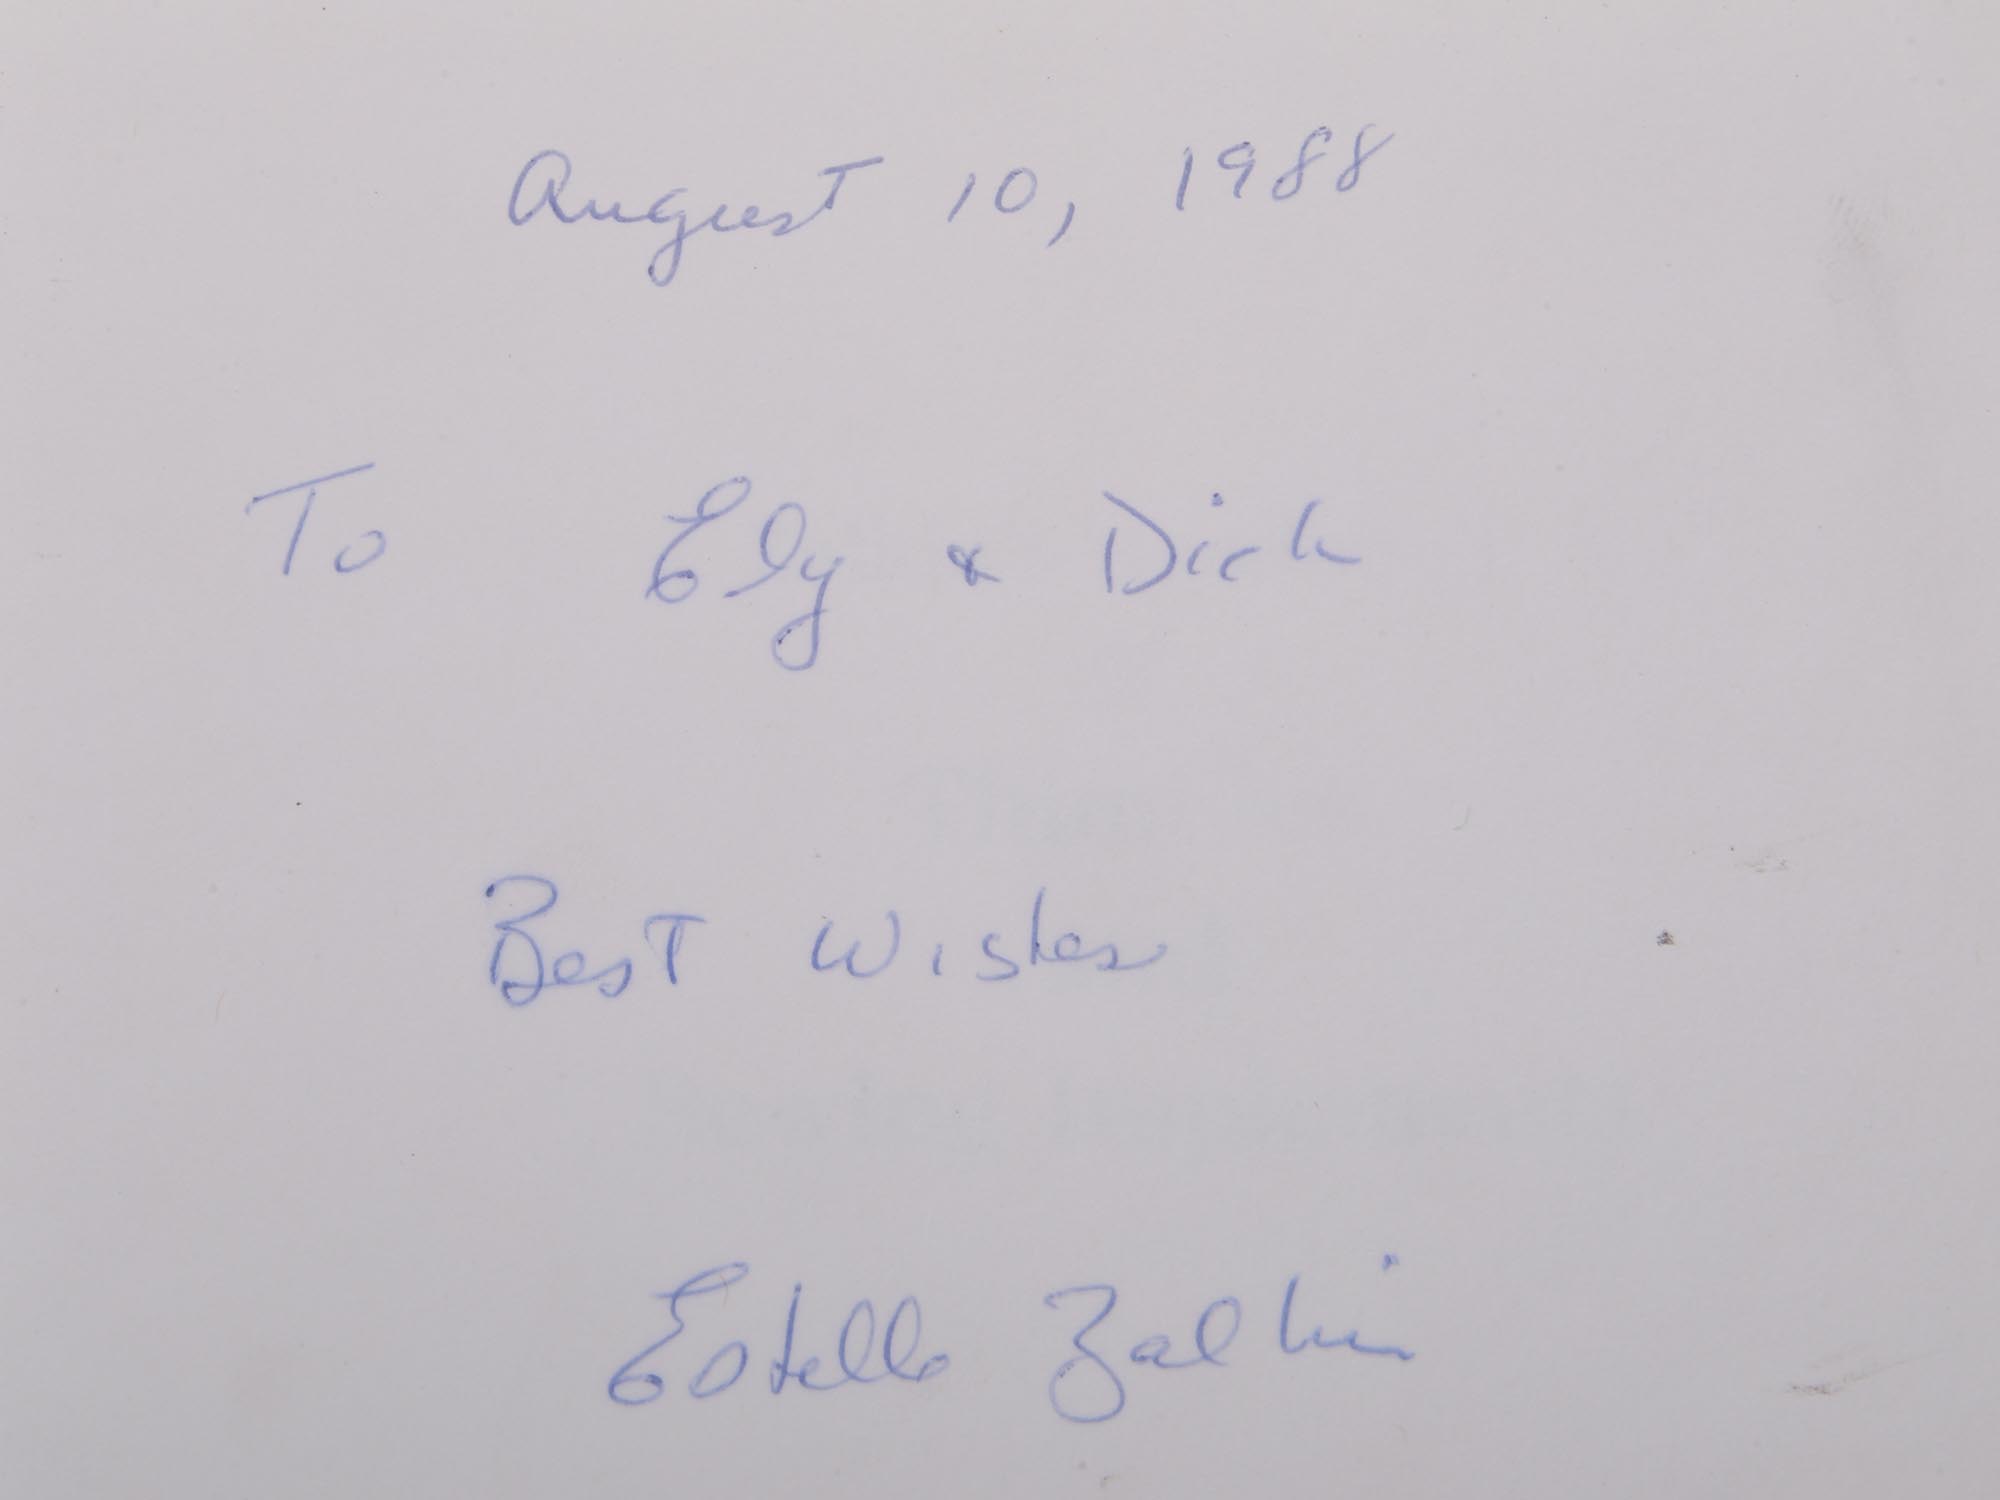 August 10, 1988
To Ely & Dick
Best Wishes
Estelle Zalkin